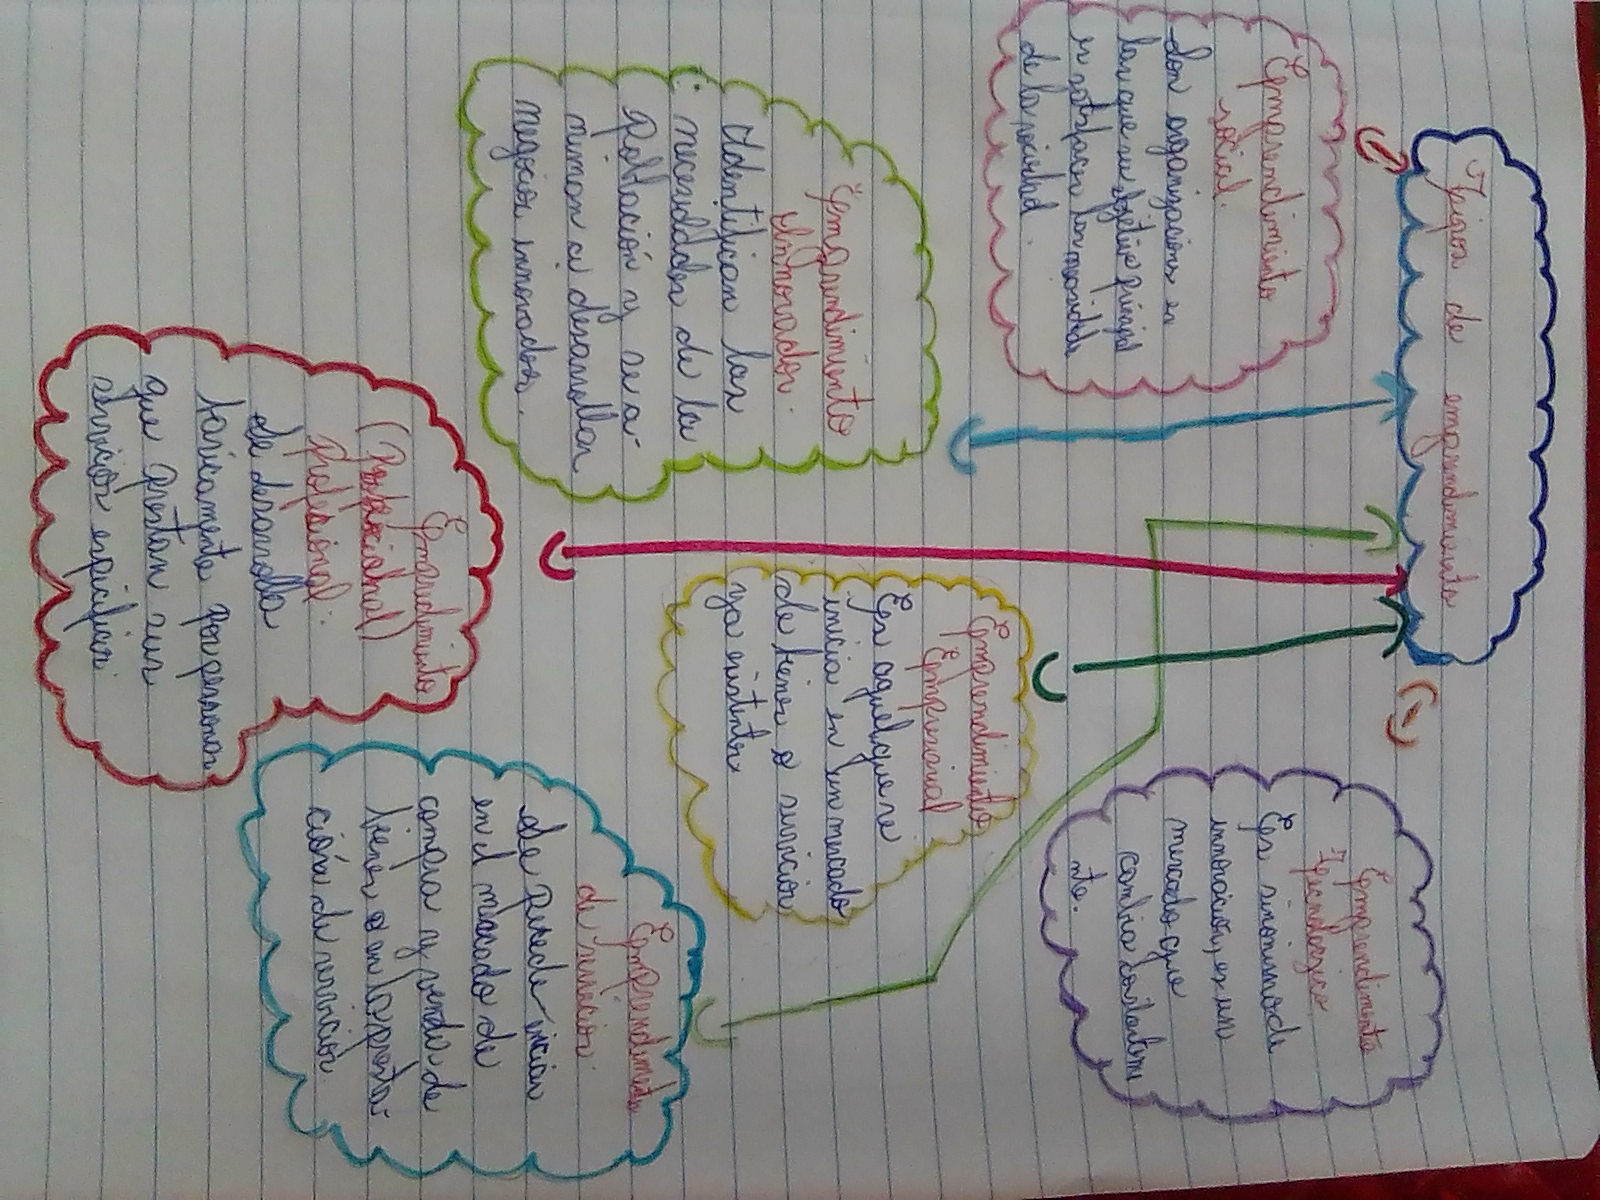 Tipos de emprendimiento
Emprendimiento
social.
Son organizaciones en
las que su objetivo principal
es satisfacer las necesidades
de la sociedad.
Emprendimiento
innovador.
Identifican las
necesidades de la
Población y se a-
niman a desarrollar
negocios innovadores.
Emprendimiento
(Profesional)
profesional:
Se desarrolla
basicamente por personas
que prestan sus
servicios especificos.
Emprendimiento
Empresarial
Es aquel que se
inicia en un mercado
de bienes o servicios
ya existentes
Emprendimiento
Tecnologico
Es sinonimo de
innovación, es un
mercado que
cambia constanteme
nte.
Emprendimiento
de servicios:
Se puede iniciar
en el mercado de
compra y vender de
bienes o en la presta-
ción de servicios.